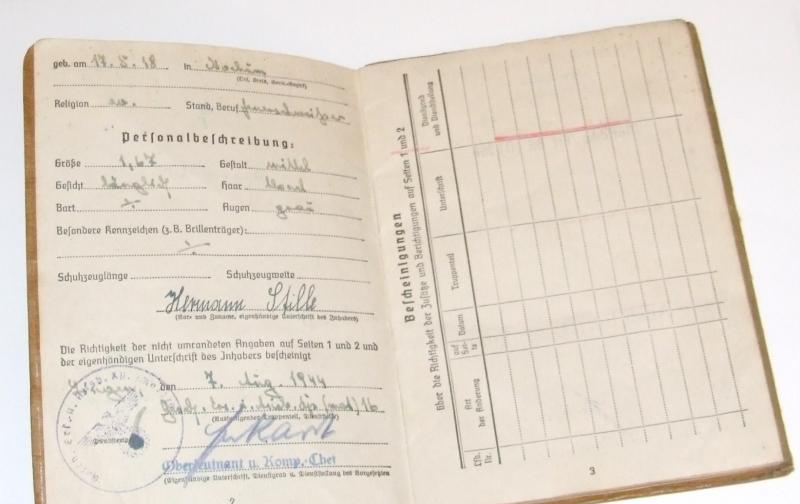 geb. am 17.5.18 in Bochum
(Ort, Kreis, Verw.-Bezirk)
Religion ev. Stand, Beruf
Personalbeschreibung:
Größe 1,67 Gestalt mittel
Gesicht länglich Haar
Bart ./. Augen grau
Besondere Kennzeichen (z.B. Brillenträger):
./.
Schuhzeuglänge Schuhzeugweite
Hermann Stille
(Vor- und Zuname, eigenhändige Unterschrift des Inhabers)
Die Richtigkeit der nicht umrandeten Angaben auf Seiten 1 und 2 und
der eigenhändigen Unterschrift des Inhabers bescheinigt
den 7. Aug. 1944
(Ausfertigender Truppenteil, Dienststelle)
Oberleutnant u. Komp.-Chef
(Eigenhändige Unterschrift, Dienstgrad u. Dienststellung des Vorgesetzten)
2
Bescheinigungen
über die Richtigkeit der Zusätze und Berichtigungen auf Seiten 1 und 2
Lfd. Nr.
Art der Änderung
auf Seite
Datum
Truppenteil
Unterschrift
Dienstgrad und Dienststellung
3